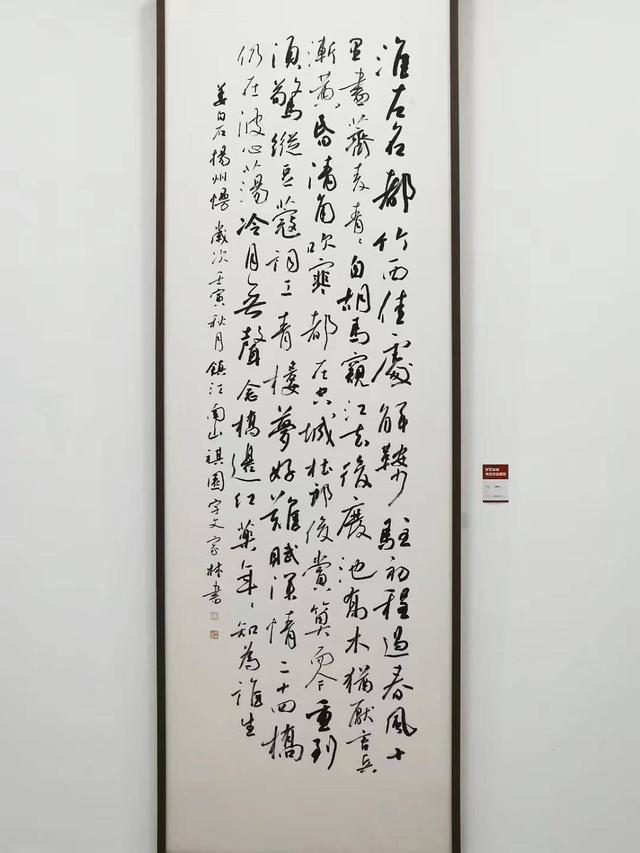 淮左名都竹西佳處解鞍少駐初程過春風十
里盡薺麥青々自胡馬窺江去後廢池喬木猶厭言兵
漸黃昏清角吹寒都在空城杜郎俊賞算而今重到
須驚縱豆蔻詞工青樓夢好難賦深情二十四橋
仍在波心蕩冷月無聲念橋邊紅藥年々知為誰生
姜白石揚州慢歲次壬寅秋月鎮江南山祺園宇文家林書